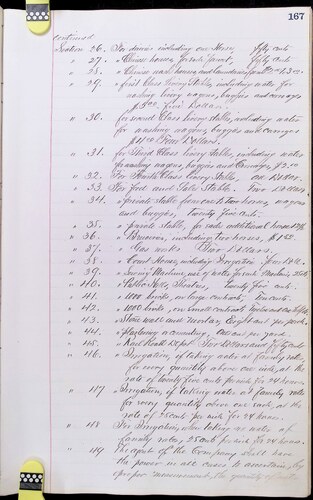 167
continued
Section 26. For drivin including one Horse, fifty cents
" 27. " Chinese houses, for each tenant, fifty cents
" 28. " Chinese wash houses and laundries
" 29. " first Class livery Stables, including water for
washing livery wagons, buggies and carriages
$5.00. Five Dollars.
" 30. for second Class livery stables, including water
for washing wagons, buggies and carriages
$4.00 Four Dollars.
" 31. for Third Class livery stables, including water
for washing wagons, buggies and Carriages $3.00
" 32. For Fourth Class livery Stables. Dollars
" 33. For feed and Sales Stable. Two Dollars
" 34. " private stable for one to two horses, wagons
and buggies, Twenty five cents.
" 35. " private stable, for each additional horse 12½
" 36. " Breweries, including two horses,
" 37. " Gas works Dollars
" 38. " Court House, including Irrigation
" 39. " Sewing Machine, use of water for each Machine, 25cts
" 40. " Public Halls, Theatres, Twenty five cents.
" 41. " 1000 bricks, on large contracts, Ten cents.
" 42. " 1000 bricks, on small contracts
" 43. " Stone wall and mortar, Eight cents per perch.
" 44. " Plastering, per yard.
" 45. " Rail Road Depot Dollars and fifty cents
" 46. " Irrigation, if taking water at family rates,
for every quantity above one inch, at the
rate of twenty five cents per inch for 24 hours.
" 47 Irrigation, if taking water at family rates
for every quantity above one inch, at the
rate of 25 cents per inch for 24 hours.
" 48 For Irrigation, when taking no water at
family rates, 25 cents per inch for 24 hours.
" 49 The agent of the Company shall have
the power in all cases to ascertain, by
proper measurement, the quantity of water